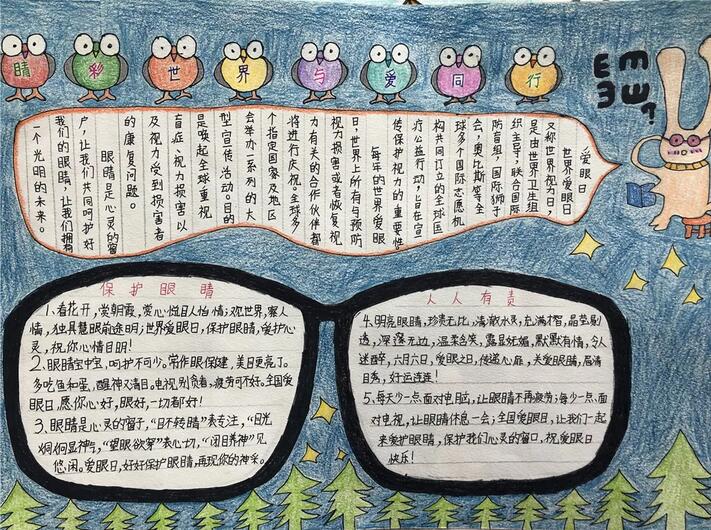 睛 彩 世 界 与 爱 同 行
爱眼日
世界爱眼日
又称世界视力日,
是由世界卫生组
织主导,联合国际
防盲组,国际狮子
会,奥比斯等全
球多个国际志愿机
构共同订立的全球医
疗公益行动,旨在宣
传保护视力的重要性
每年的世界爱眼
日,世界上所有与预防
视力损害或者恢复视
力有关的合作伙伴都
将进行庆祝。全球多
个指定国家及地区
会举办一系列的大
型宣传活动。目的
是唤起全球重视
盲症、视力损害以
及视力受到损害者
的康复问题。
眼睛是心灵的窗
户,让我们共同呵护好
我们的眼睛,让我们拥抱
一个光明的未来。
保护眼睛
1、看花开,赏朝霞,赏心悦目人怡情;观世界,察人
情,独具慧眼前途明;世界爱眼日,保护眼睛,爱护心
灵,祝你心情目明!
2、眼睛宝中宝,呵护不可少。常作眼保健,美目更亮了。
多吃鱼和蛋,醒神又清目。电视别贪看,疲劳可不好。全国爱
眼日愿你心好,眼好,一切都好!
3、眼睛是心灵的窗子,“目不转睛”表专注,“目光
炯炯”显神气,“望眼欲穿”表心切,“闭目养神”见
悠闲。爱眼日,好好保护眼睛,再现你的神采。
人人有责
4、明亮眼睛,珍贵无比,清澈水灵,充满才智,晶莹剔
透,深邃无边,温柔含笑,露显妩媚,默默有情,令人
迷醉,六月六日,爱眼之日,传递心愿,关爱眼睛,眉清
目秀,好运连连!
5、每天少一点面对电脑,让眼睛不再疲劳;每少一点面
对电视,让眼睛休息一会;全国爱眼日,让我们一起
来爱护眼睛,保护我们心灵的窗口,祝爱眼日
快乐!